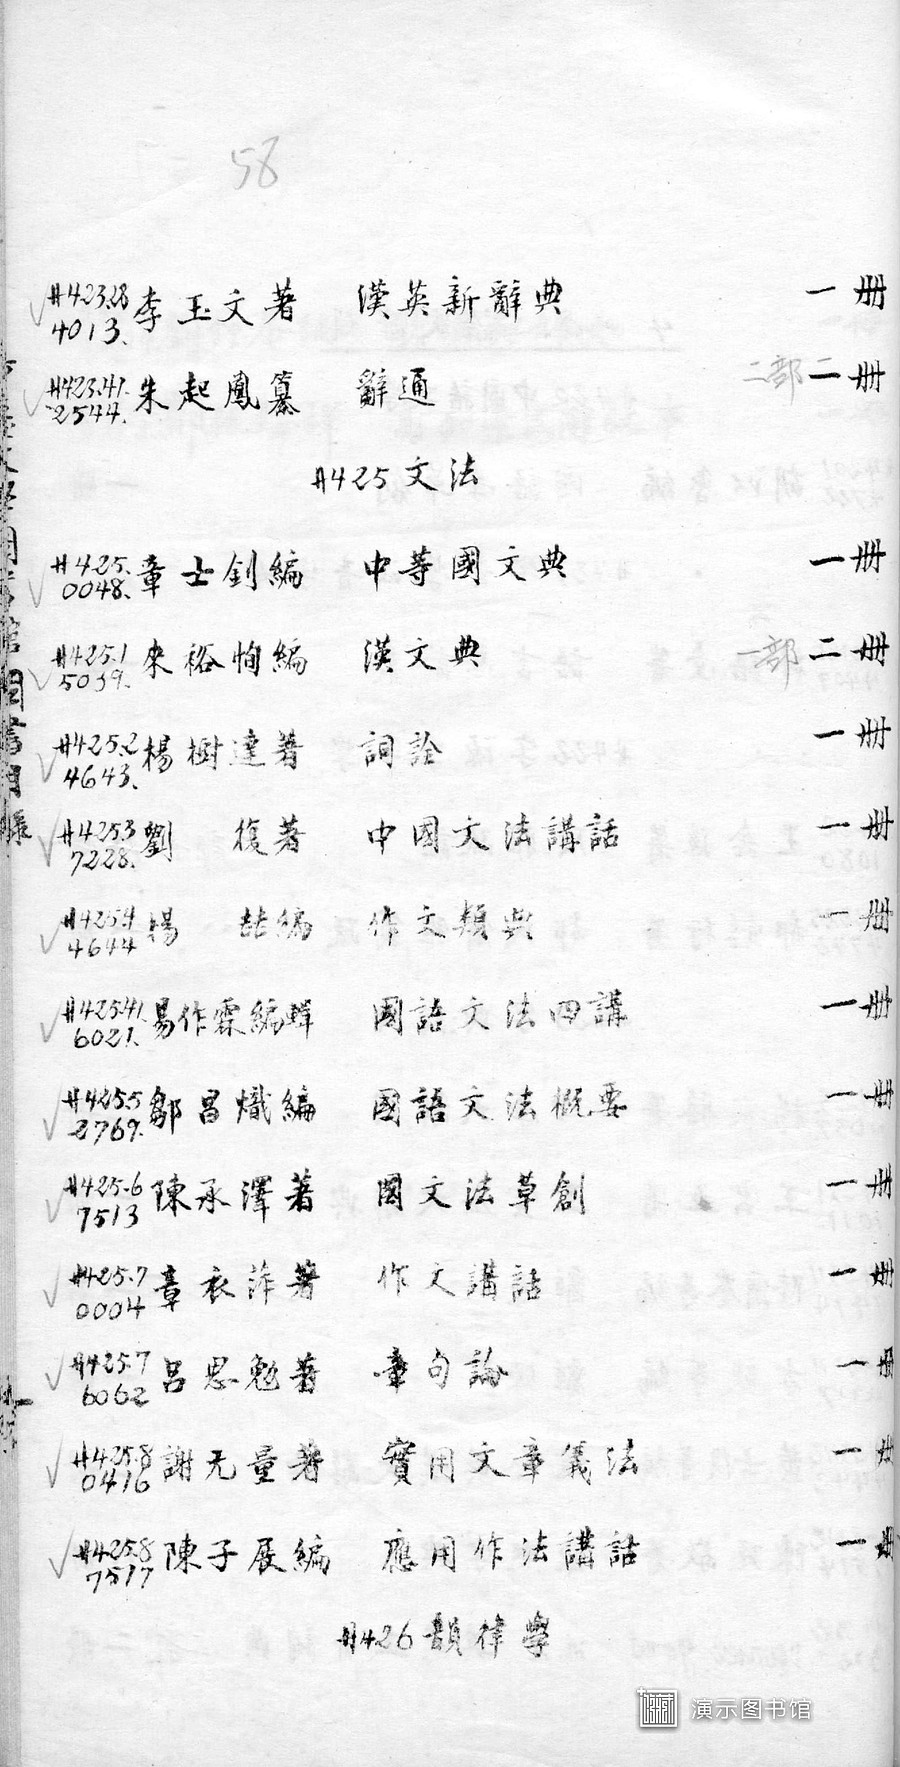 58
廾423.28 4013. 李玉文著 漢英新辭典 一册
廾423.41. 2544. 朱起鳳纂 辭通 二部 二册
廾425文法
廾425. 0048. 章士釗編 中等國文典 一册
廾425.1 5039. 來裕恂編 漢文典 一部 二册
廾425.2 4643. 楊樹達著 詞詮 一册
廾425.3 7228. 劉復著 中國文法講話 一册
廾425.4 4644 楊喆編 作文類典 一册
廾425.41. 6021. 易作霖編輯 國語文法四講 一册
廾425.5 2769. 鄒昌熾編 國語文法概要 一册
廾425.6 7513 陳承澤著 國文法草創 一册
廾425.7 0004 章衣萍著 作文講話 一册
廾425.7 6062 呂思勉著 章句論 一册
廾425.8 0416 謝无量著 實用文章義法 一册
廾425.8 7517 陳子展編 應用作法講話 一册
廾426韻律學
演示图书馆